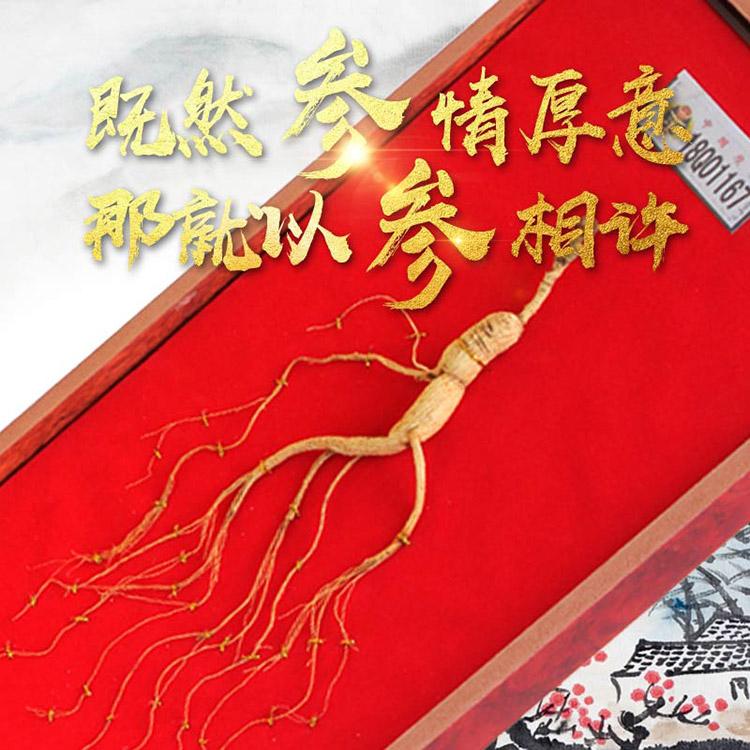 既然参情厚意
那就以参相许
18Q01167